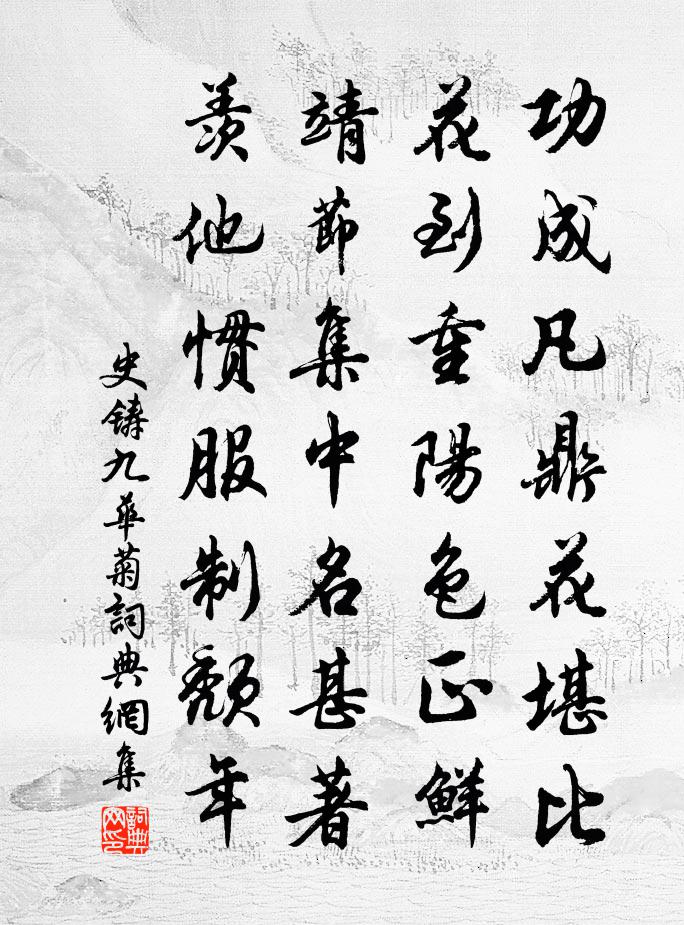 功成凡鼎花堪比
花到重陽色正鮮
靖節集中名甚著
羨他慣服制頹年
史鑄九華菊詞典網集
詞典网印